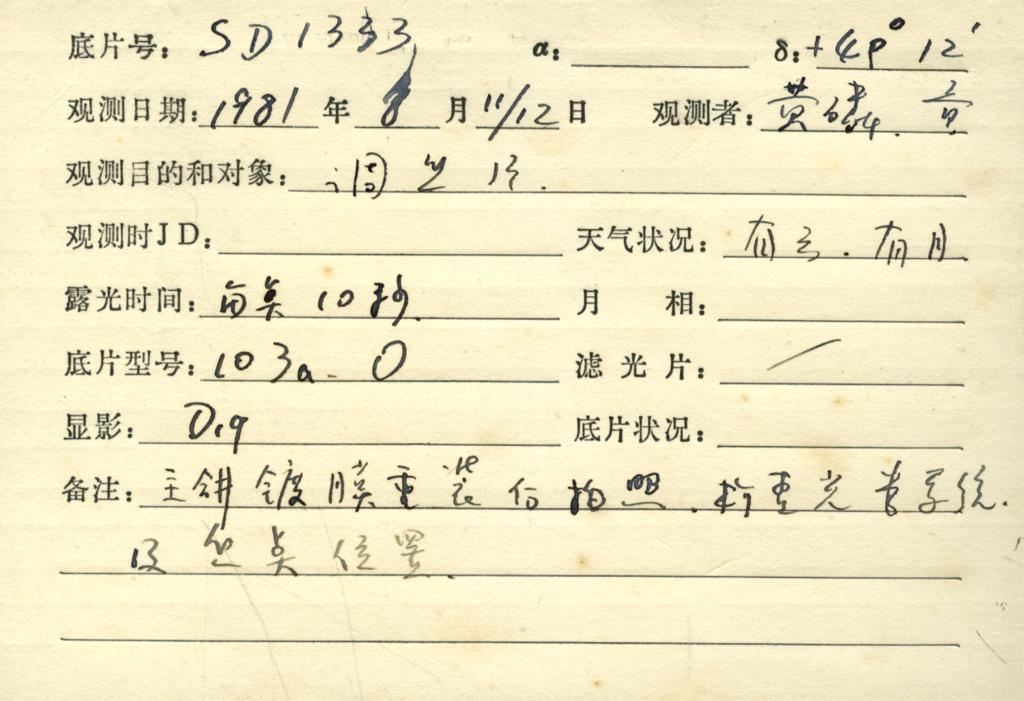 底片号: SD1333 α: δ: +49° 12′
观测日期: 1981 年 8 月 11/12 日 观测者: 黄磷.
观测目的和对象: 调焦片.
观测时JD: 天气状况: 有云. 有月.
露光时间: 每点 10秒. 月 相:
底片型号: 103a-O 滤光片: /
显影: D19 底片状况:
备注: 主镜镀膜重装后拍照. 检查光学系统.
及焦点位置.